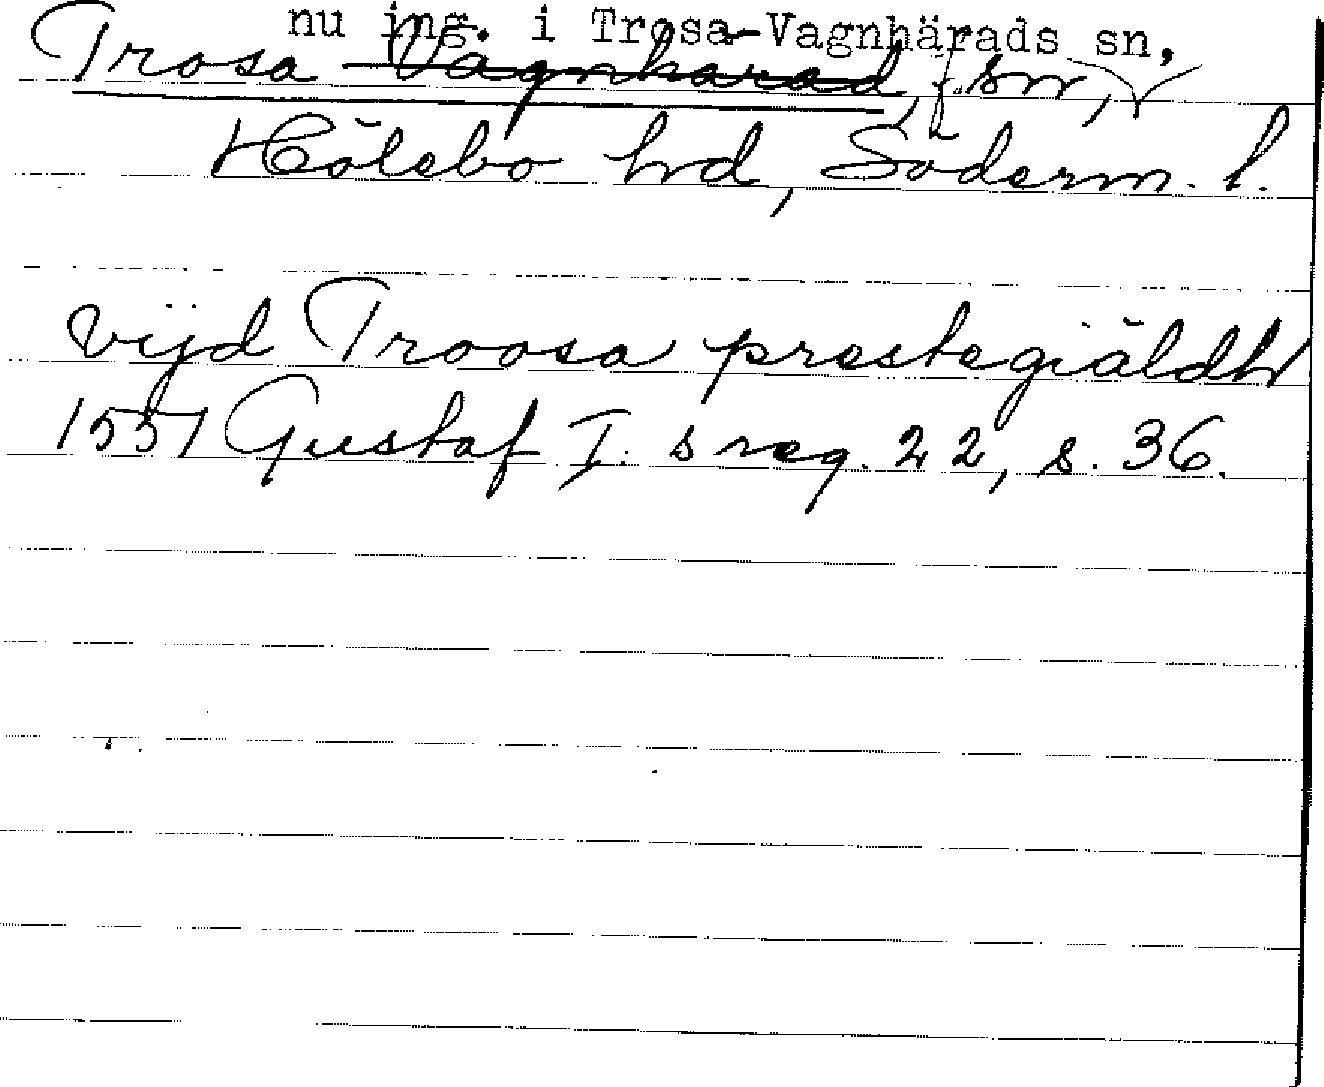 nu ing. i Trosa-Vagnhärads sn,
Trosa Vagnhärad, f. sn,
Hölebo hd, Söderm. l.
vijd Troosa prestegiäldh
1551 Gustaf I:s reg. 22, s. 36.